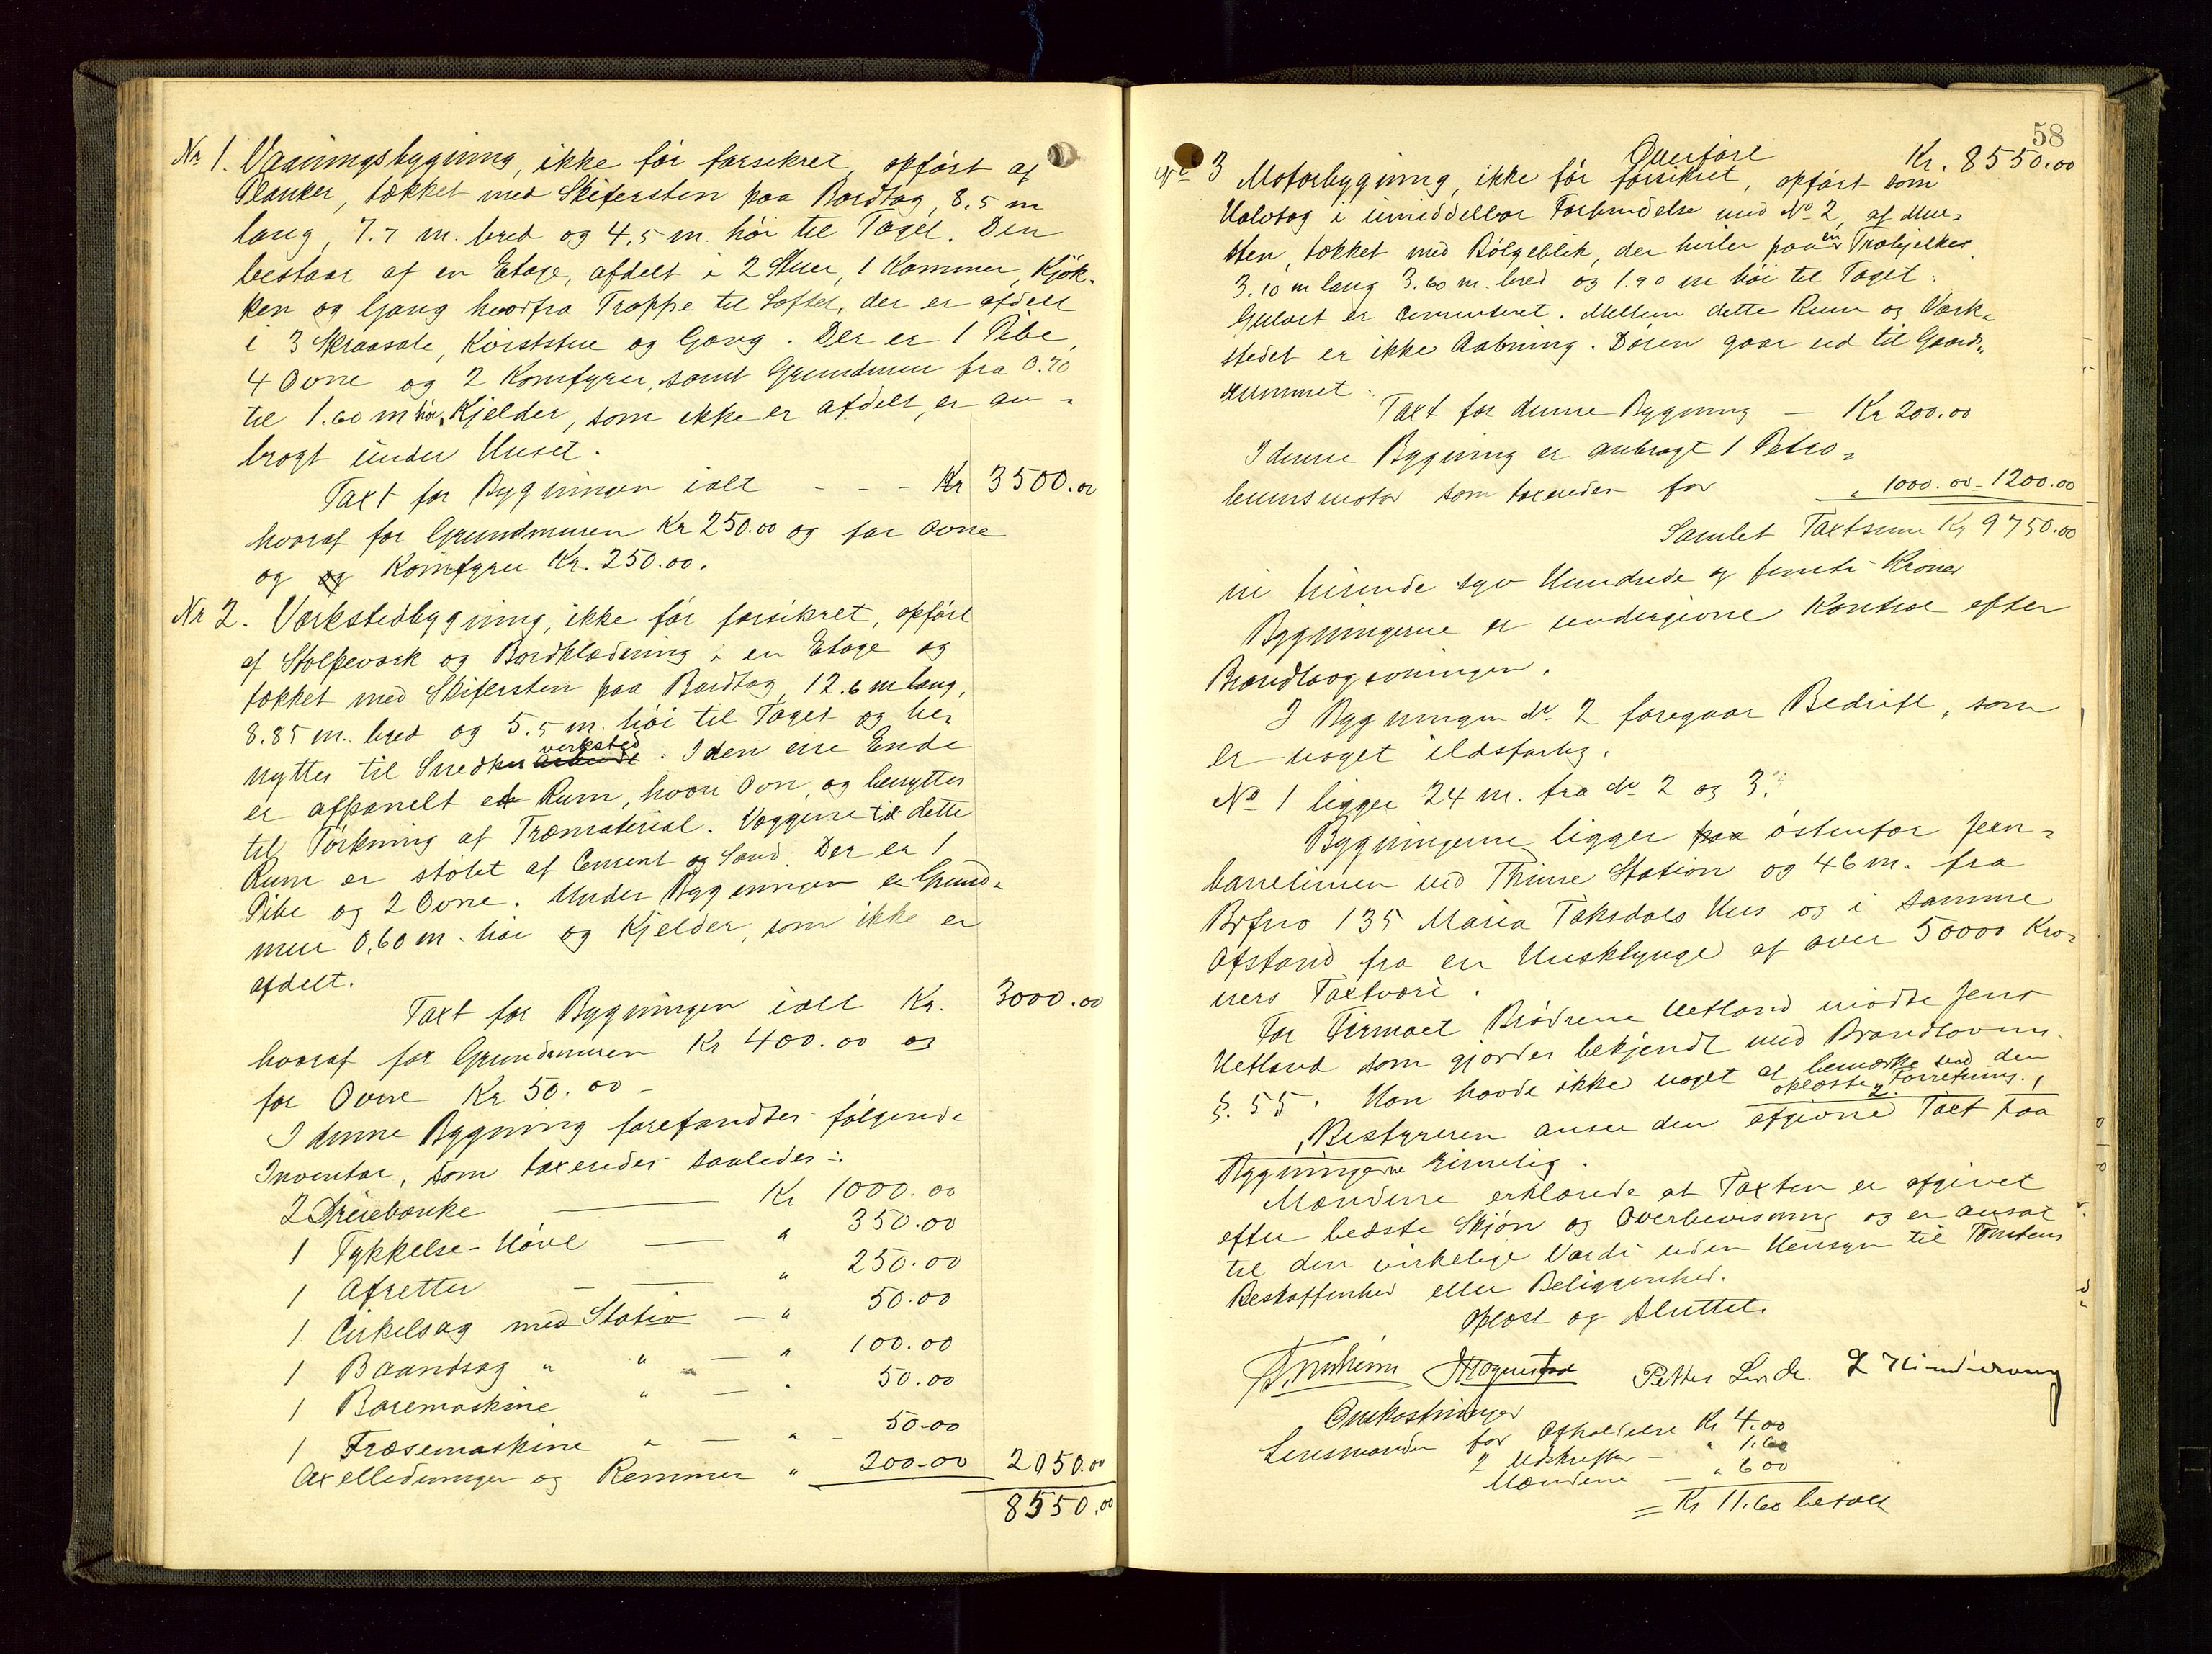 Nr 1. Vaaningsbygning, ikke før forsikret, opført af
Planker, tækket med Skifersten paa Bordtag, 8.5 m
lang, 7.7 m. bred og 4.5 m. høi til Taget. Den
bestaar af en Etage, afdelt i 2 Stuer, 1 Kammer, Kjøk-
ken og Gang hvorfra Trappe til Loftet, der er afdelt
i 3 Skraasale, Kviststue og Gang. Der er 1 Pibe,
4 Ovne og 2 Komfyrer, samt Grundmur fra 0.70
til 1.60 m høi, Kjelder, som ikke er afdelt, er an-
bragt under Huset.
Taxt for Bygningen ialt - - - Kr 3500.00
hvoraf for Grundmuren Kr 250.00 og for Ovne
og og Komfyrer Kr. 250.00.
Nr 2. Værkstedbygning, ikke før forsikret, opført
af Stolpeværk og Bordklædning i en Etage og
tækket med Skifersten paa Bordtag, 12.6 m lang,
8.85 m. bred og 5.5 m. høi til Taget og be-
nyttes til Snedker verksted. I den ene Ende
er afpanelt et Rum, hvori Ovn, og benyttes
til Tørkning af Træmaterial. Væggene til dette
Rum er støbt af Cement og Sand. Der er 1
Pibe og 2 Ovne. Under Bygningen er Grund-
mur 0,60 m. høi og Kjelder, som ikke er
afdelt.
Taxt for Bygningen ialt Kr. 3000.00
hvoraf for Grundmuren Kr 400.00 og
for Ovne Kr 50.00 -
I denne Bygning forefandtes følgende
Inventar, som taxeredes saaledes:
2 Dreiebænke — Kr 1000.00
1 Tykkelse-Høvl — " 350.00
1 Afretter — " 250.00
1 Cirkelsag med Stativ — " 50.00
1 Baandsag " " — " 100.00
1 Boremaskine " — " 50.00
1 Fræsemaskine " — " - 50.00
Axelledninger og Remmer " 200.00 2050.00
8550.00
58
Overført Kr. 8550.00
No 3 Motorbygning, ikke før forsikret, opført som
Halvtag i umiddelbar Forbindelse med No 2, af Mur-
sten, tækket med Bølgeblik, der hviler paa en Træbjelke,
3.10 m lang 3.60 m. bred og 1.90 m høi til Taget.
Gulvet er cementeret. Mellem dette Rum og Værk-
stedet er ikke Aabning. Døren gaar ud til Gaards-
rummet.
Taxt for denne Bygning — Kr 200.00
I denne Bygning er anbragt 1 Petro-
leumsmotor som taxeredes for " 1000.00 - 1200.00
Samlet Taxtsum Kr 9750.00
ni tusinde syv Hundrede og femti Kroner
Bygningerne er undergivne Kontrol efter
Brandlovgivningen.
I Bygningen No 2 foregaar Bedrift, som
er noget ildsfarlig.
No 1 ligger 24 m. fra No 2 og 3.
Bygningerne ligger paa østenfor Jern-
banelinien ved Thime Station og 46 m. fra
Brfno 135 Maria Taksdals Hus og i samme
Afstand fra en Husklynge af over 50000 Kro-
ners Taxtværi.
For Firmaet Brødrene Uetland mødte Jens
Uetland som gjordes bekjendt med Brandlovens
§. 55. Han havde ikke noget at bemærke ved den
oplæste Forretning.
Bestyreren anser den afgivne Taxt paa
Bygningerne rimelig.
Mændene erklærede at Taxten er afgivet
efter bedste Skjøn og Overbevisning og er ansat
til den virkelige Værdi uden Hensyn til Tomtens
Beskaffenhed eller Beliggenhed.
Oplæst og sluttet.
Petter Lende.
Omkostninger
Lensmanden for Afholdelse Kr 4.00
2 Udskrifter - " 1.60
Mændene — " 6.00
= Kr 11.60 betalt